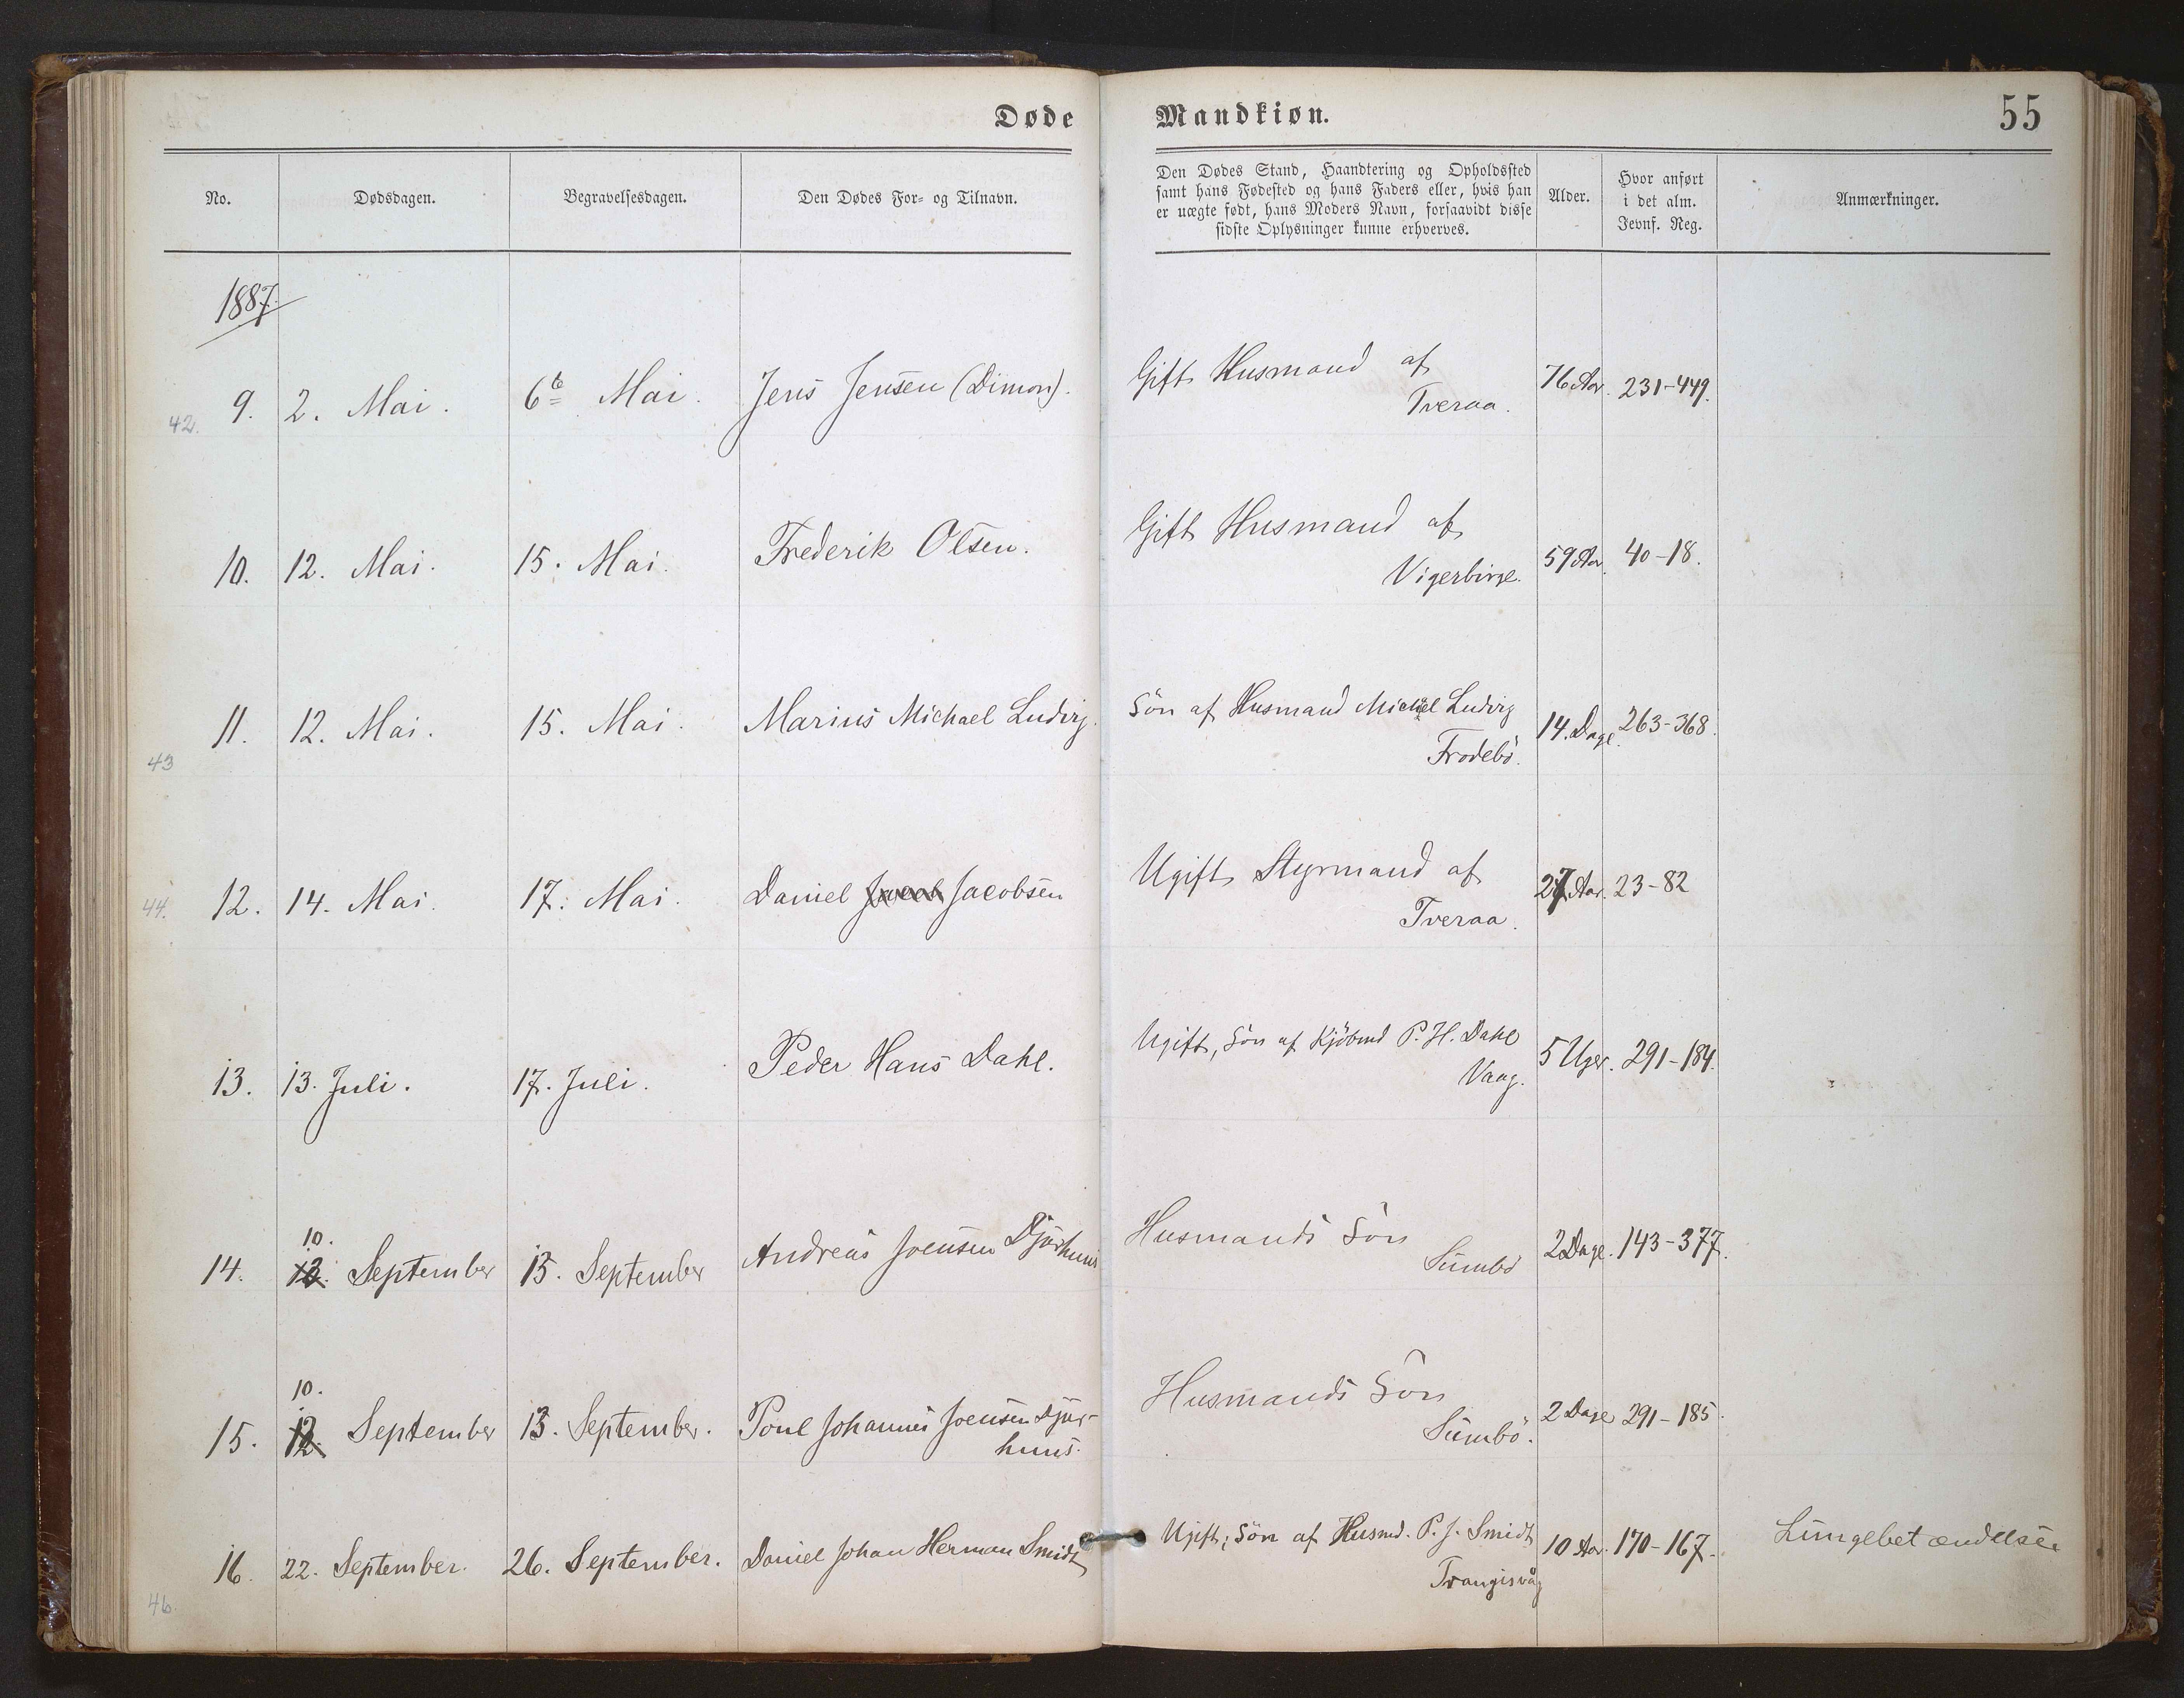 Døde Mandkiøn. 55
No. Dødsdagen. Begravelsesdagen. Den Dødes For- og Tilnavn.
Den Dødes Stand, Haandtering og Opholdssted
samt hans Fødested og hans Faders eller, hvis han
er uægte født, hans Moders Navn, forsaavidt disse
sidste Oplysninger kunne erhverves.
Alder.
Hvor anført
i det alm.
Jevnf. Reg.
Anmærkninger.
1887.
42. 9. 2. Mai. 6te Mai. Jens Jensen (Dimon). Gift Husmand af 76 Aar. 231-449.
Tveraa.
10. 12. Mai. 15. Mai. Frederik Olsen. Gift Husmand af 59 Aar. 40-18.
Vigerbirge.
43 11. 12. Mai. 15. Mai. Marius Michael Ludvig. Sön af Husmand Michael Ludvig 14. Dage. 263-368.
Frodebö.
44. 12. 14. Mai. 17. Mai. Daniel Jacob Jacobsen Ugift Styrmand af 27 Aar. 23-82
Tveraa.
13. 13. Juli. 17. Juli. Peder Hans Dahl. Ugift, Sön af Kjöbmd P. H. Dahl 5 Uger. 291-184.
Vaag.
10.
14. 12. September 15. September Andreas Joensen Djurhuus Husmands Sön 2 Dage. 143-377.
Sumbö
10.
15. 12. September 13. September. Poul Johannes Joensen Djur- Husmands Sön 2 Dage 291-185.
huus. Sumbö.
16. 22. September. 26. September. Daniel Johan Herman Smidt Ugift; Sön af Husmd. P. J. Smidt 10 Aar. 170-167. Lungebetændelse
Trangisvåg
46.